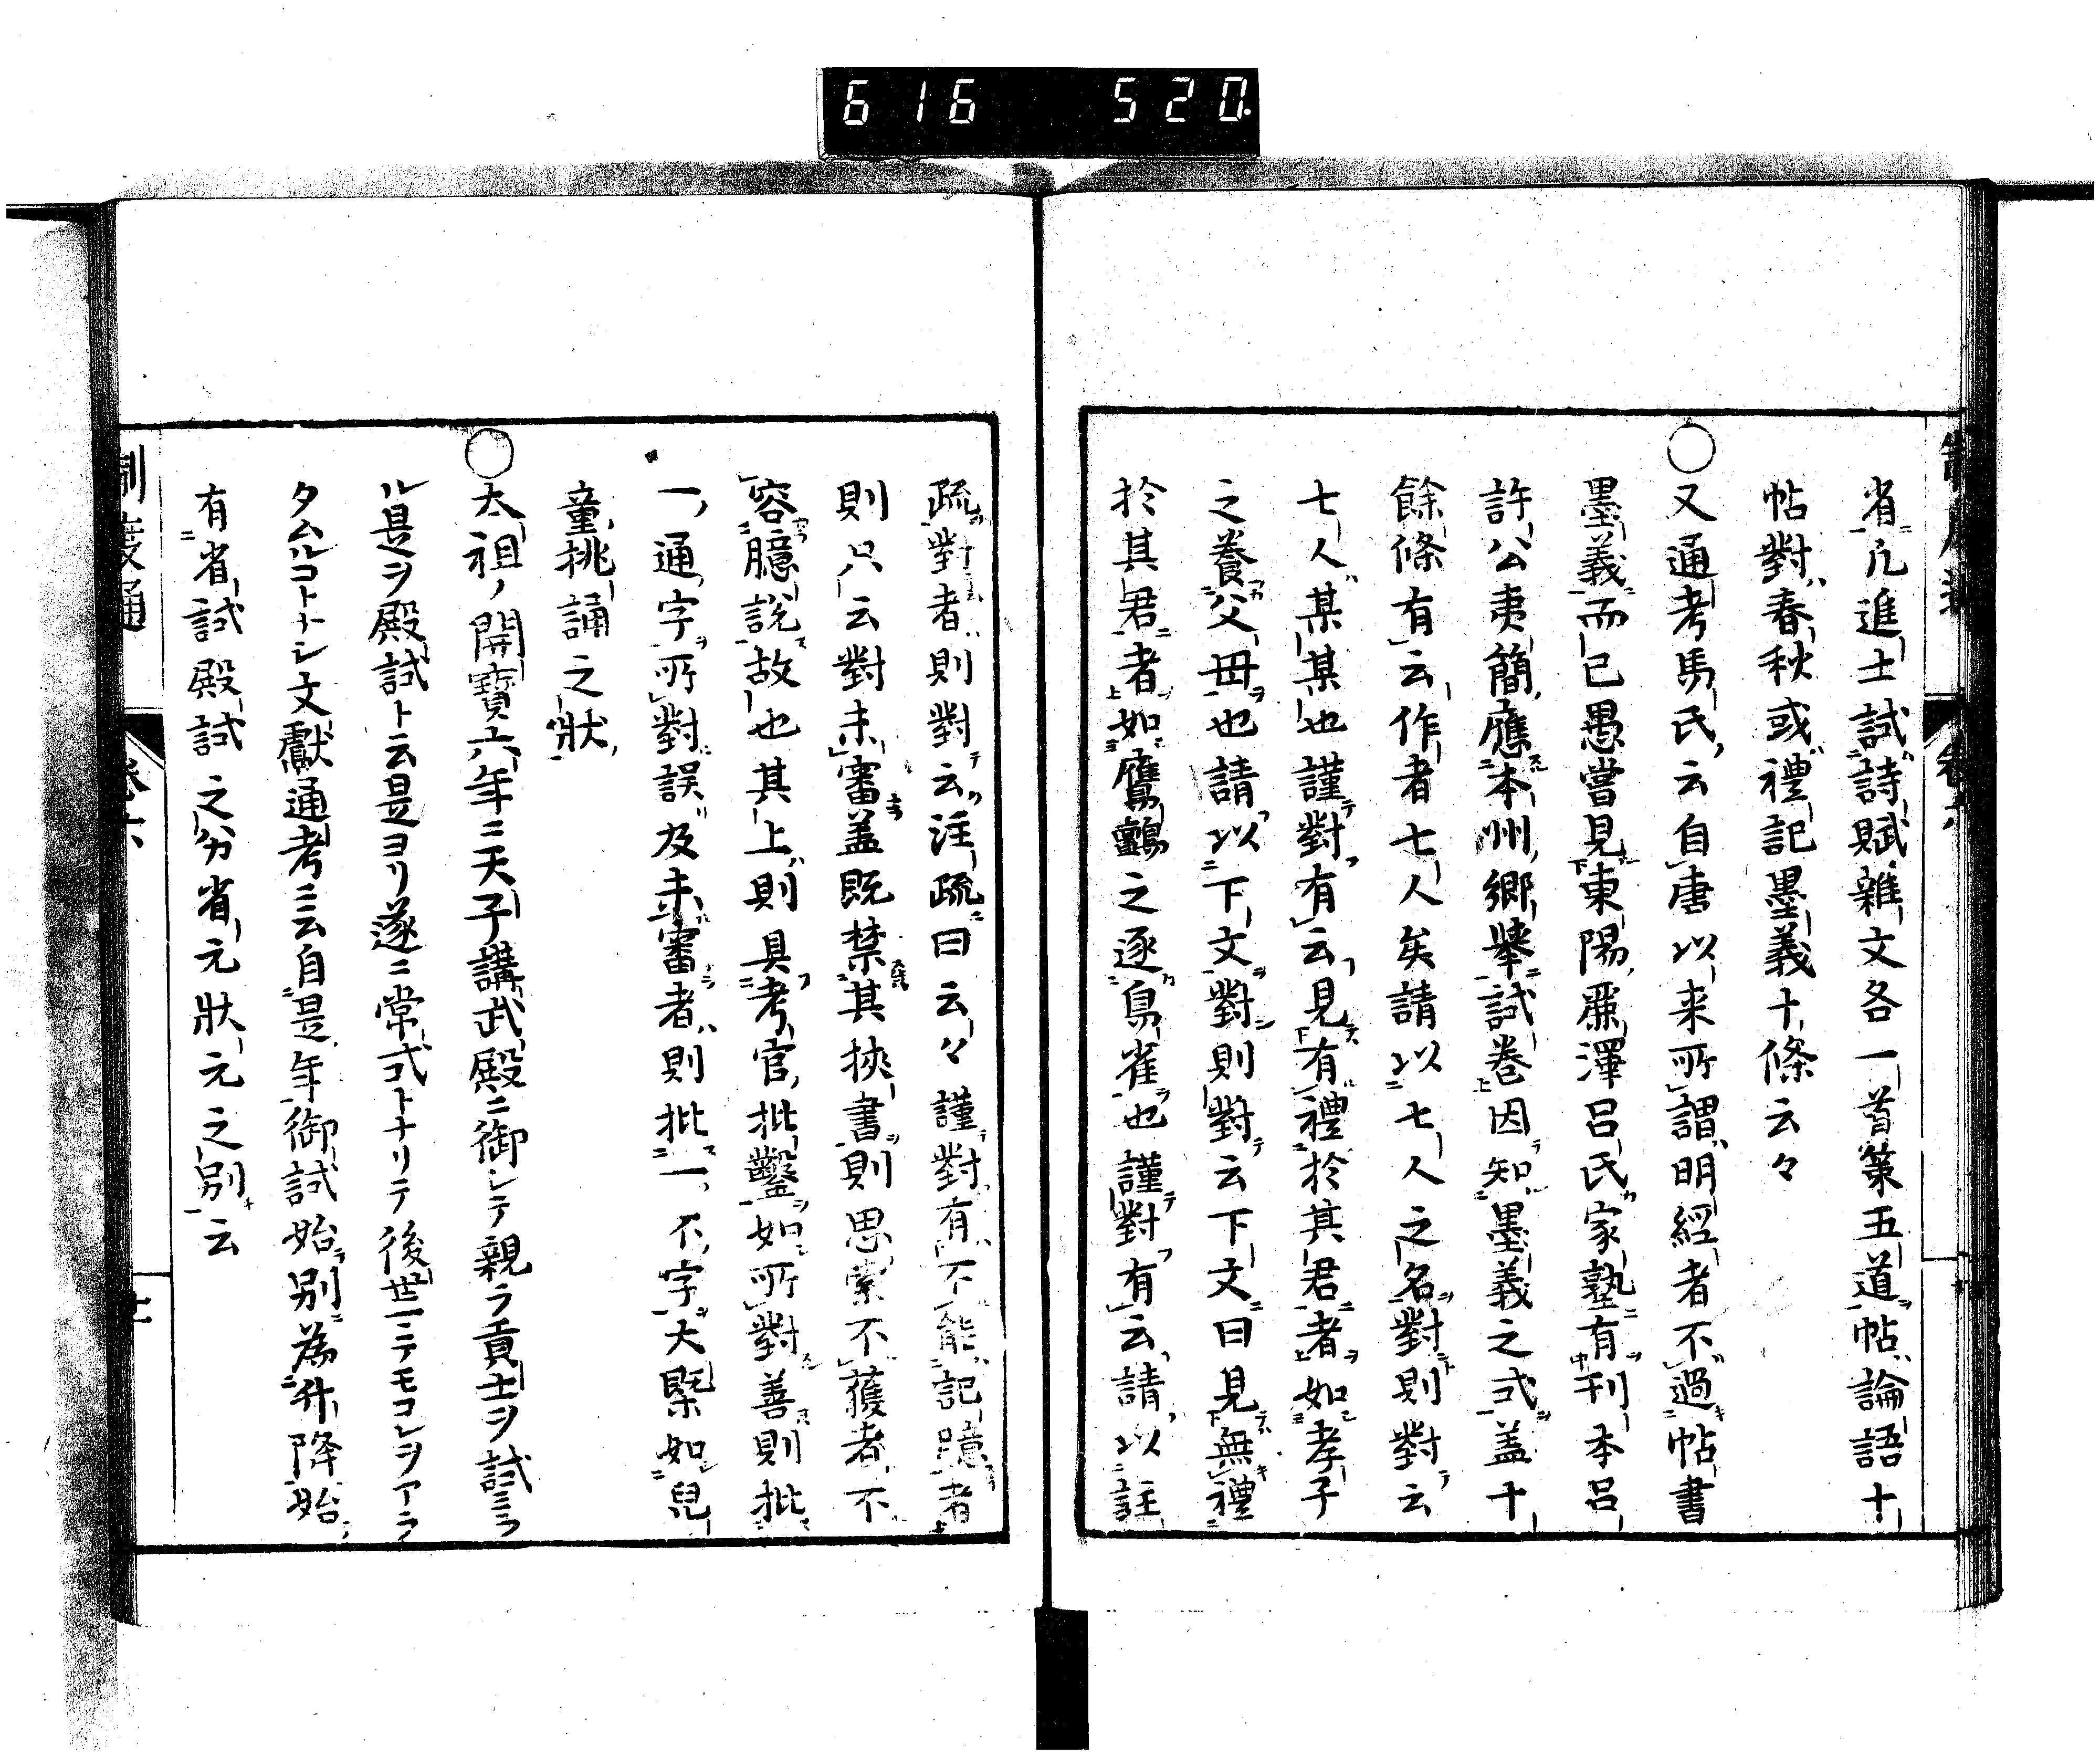 616 520
省凡進士試詩賦雜文各一首策五道帖論語十
帖對春秋或禮記墨義十條云々
○又通考馬氏云自唐以来所謂明經者不過帖書
墨義而已愚嘗見東陽麗澤呂氏家塾有刊本呂
許公夷簡應本州鄉舉試卷因知墨義之式盖十
餘條有云作者七人矣請以七人之名對則對云
七人某某也謹對有云見有禮於其君者如孝子
之養父母也請以下文對則對云下文曰見無禮
於其君者如鷹鸇之逐鳥雀也謹對有云請以註
疏對者則對云注疏曰云々謹對有不能記臆者
則只云對未審盖既禁其挾書則思索不獲者不
容臆說故也其上則具考官批鑿如所對善則批
一通字所對誤及未審者則批一不字大槩如兒
童挑誦之狀
○太祖ノ開寶六年ニ天子講武殿ニ御シテ親ラ貢士ヲ試ミラ
ル是ヲ殿試ト云是ヨリ遂ニ常式トナリテ後世ニテモコレヲアラ
タムルコトナシ文獻通考ニ云自是年御試始別為升降始
有省試殿試之分省元狀元之別云
制度通 卷六 十一